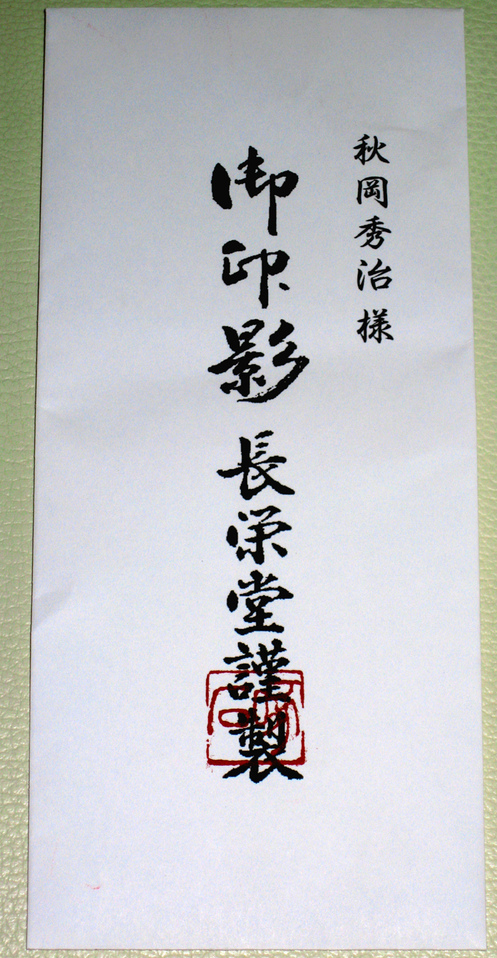 秋岡秀治様
御印影 長栄堂謹製